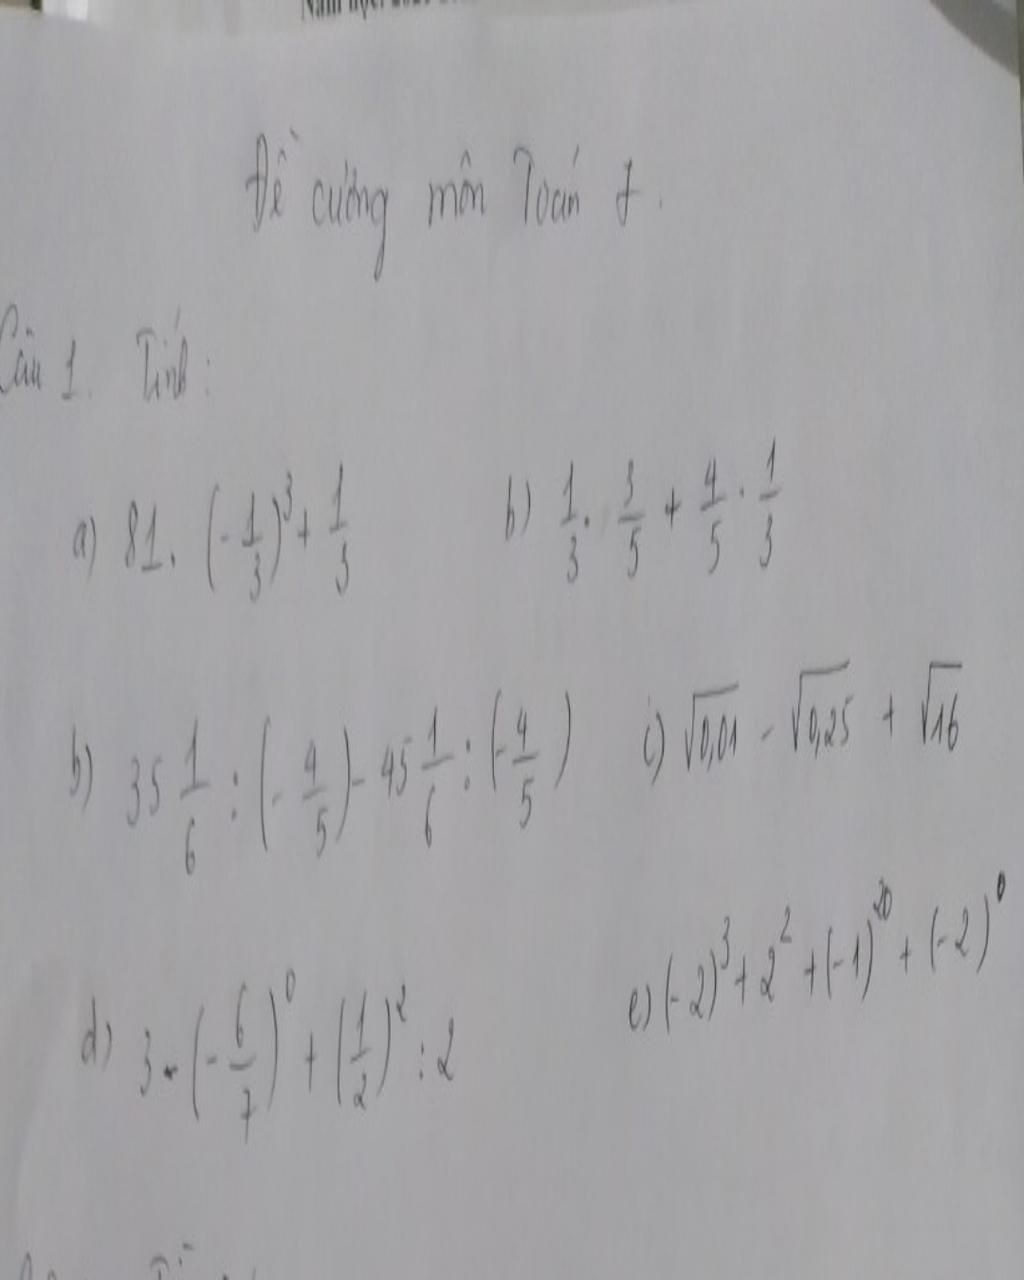 Đề cương môn Toán 7.
Câu 1. Tính:
a) 81. (-1/3)^3 + 1/3
b) 1/3 . 3/5 + 4/5 . 1/3
b) 35 1/6 : (-4/5) - 45 1/6 : (-4/5)
c) √0,01 - √0,25 + √16
d) 3 - (-6/7)^0 + (1/2)^2 : 2
e) (-2)^3 + 2^2 + (-1)^20 + (-2)^0